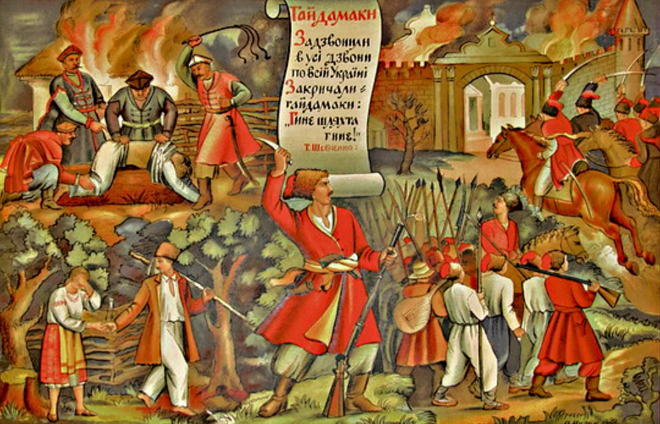 Гайдамаки
Задзвонили
в усі дзвони
по всій Україні
Закричали
гайдамаки:
„Гине шляхта
гине!"
Т. Шевченко: